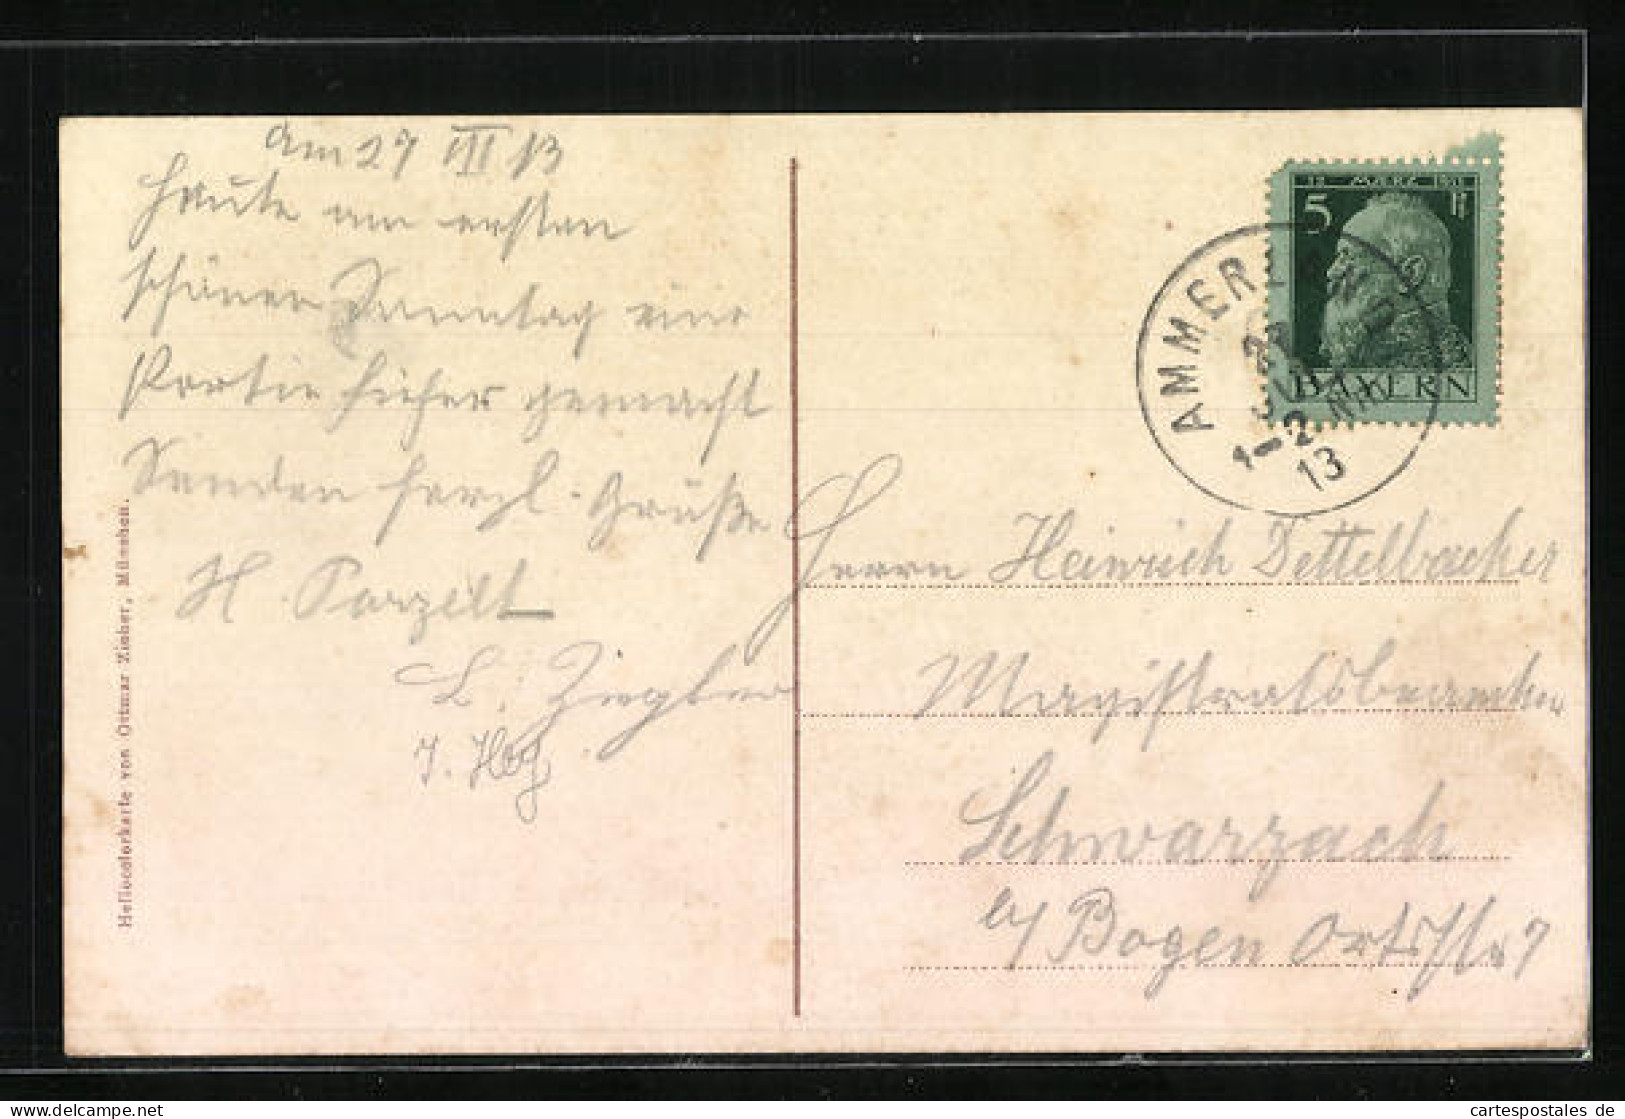 Am 27 III 13
Heute am ersten
schönen Sonntag eine
Partie hieher gemacht
Senden herzl. Grüße
H. Parzelt
L. Ziegler
Heliocolorkarte von Ottmar Zieher, München.
12 MÄRZ 1911
5 Pf
BAYERN
AMMERLAND
1-2 NM
13
Herrn Heinrich Dettelbacher
Magistratsbeamter
Schwarzach
b/ Bogen Ortsstr 7
cartespostales de
www.cartespostales.de